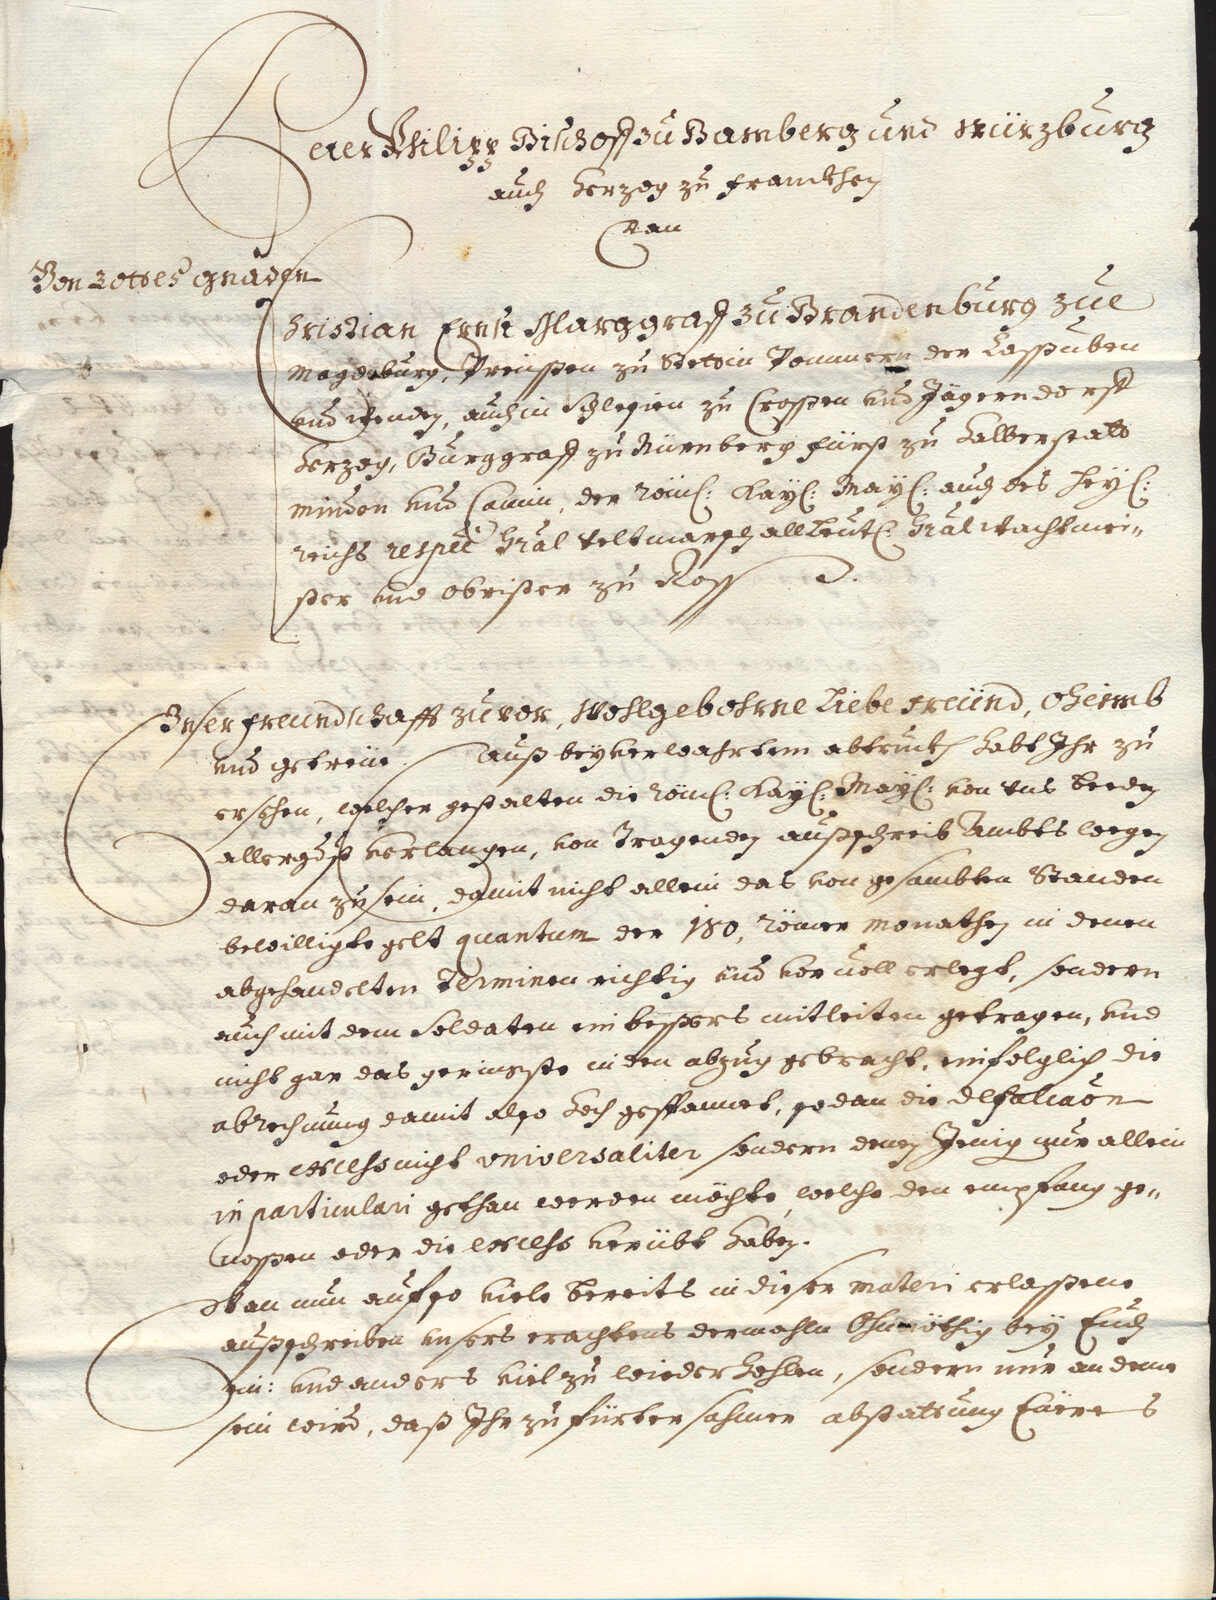 Peter Philipp Bischoff zu Bamberg und Würzburg
auch Herzog zu Franckhen
Dan
Von Gottes gnaden
Christian Ernst Marggraff zu Brandenburg zue
Magdeburg, Preussen zu Stettin Pommern der Cassuben
und Wenden, auch in Schlesien zu Crossen und Jägerndorff
Herzog, Burggraff zu Nürnberg Fürst zu Halberstatt
Minden und Camin, der Röm: Kay: May: auch des Hey:
reichs respec Gräl Veltmarschall Leut: Gräl Wachtmei-
ster und Obrister zu Ross
Unser freundschafft zuvor, Wohlgebohrne Liebe Freünd, Oheimb
und getreüe. Auß beyverwahrtem abtruckh habt Ihr zu
ersehen, welcher gestalten die Röm: Kay: May: von uns beeden
allergdst verlangen, von Tragenden außschreib Ambts wegen
daran zu sein, damit nicht allein das von gesambten Standen
bewilligte gelt quantum der 180, Römer Monathen in denen
abgehandelten Terminen richtig und vor voll erlegt, sondern
auch mit dem Soldaten ein bessers mitleiden getragen, und
nicht gar das geringste in den abzug gebracht, einfolglich die
abrechnung damit also hoch gespannet, sodan die defalcaon
oder excess nicht universaliter sondern denen Jenig nur allein
in particulari gethan werden möchte, welche den empfang ge-
nossen oder die excess verübt haben.
Wan nun auf so viele bereits in dieser materi erlassene
außschreiben unsers erachtens dermahln Ohnnöthig bey Euch
ein: und anders viel zu wiederhohlen, sondern nur an deme
sein wird, daß Ihr zu fürdersahmer abstattung Eüers